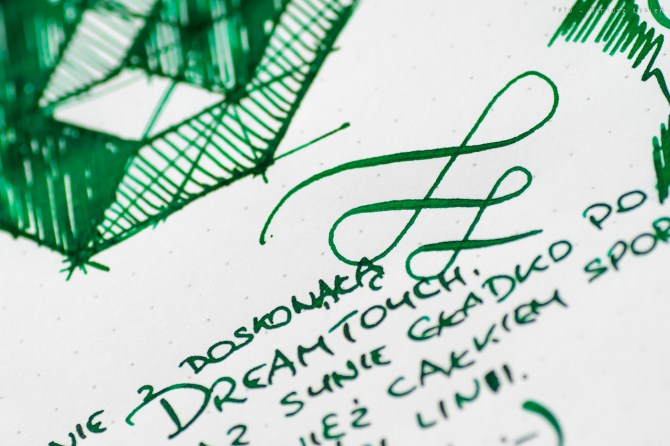 NIE Z DOSKONAŁĄ
DREAMTOUCH,
AŻ SUNIE GŁADKO PO
IEŻ CAŁKIEM SPOR
LINII.